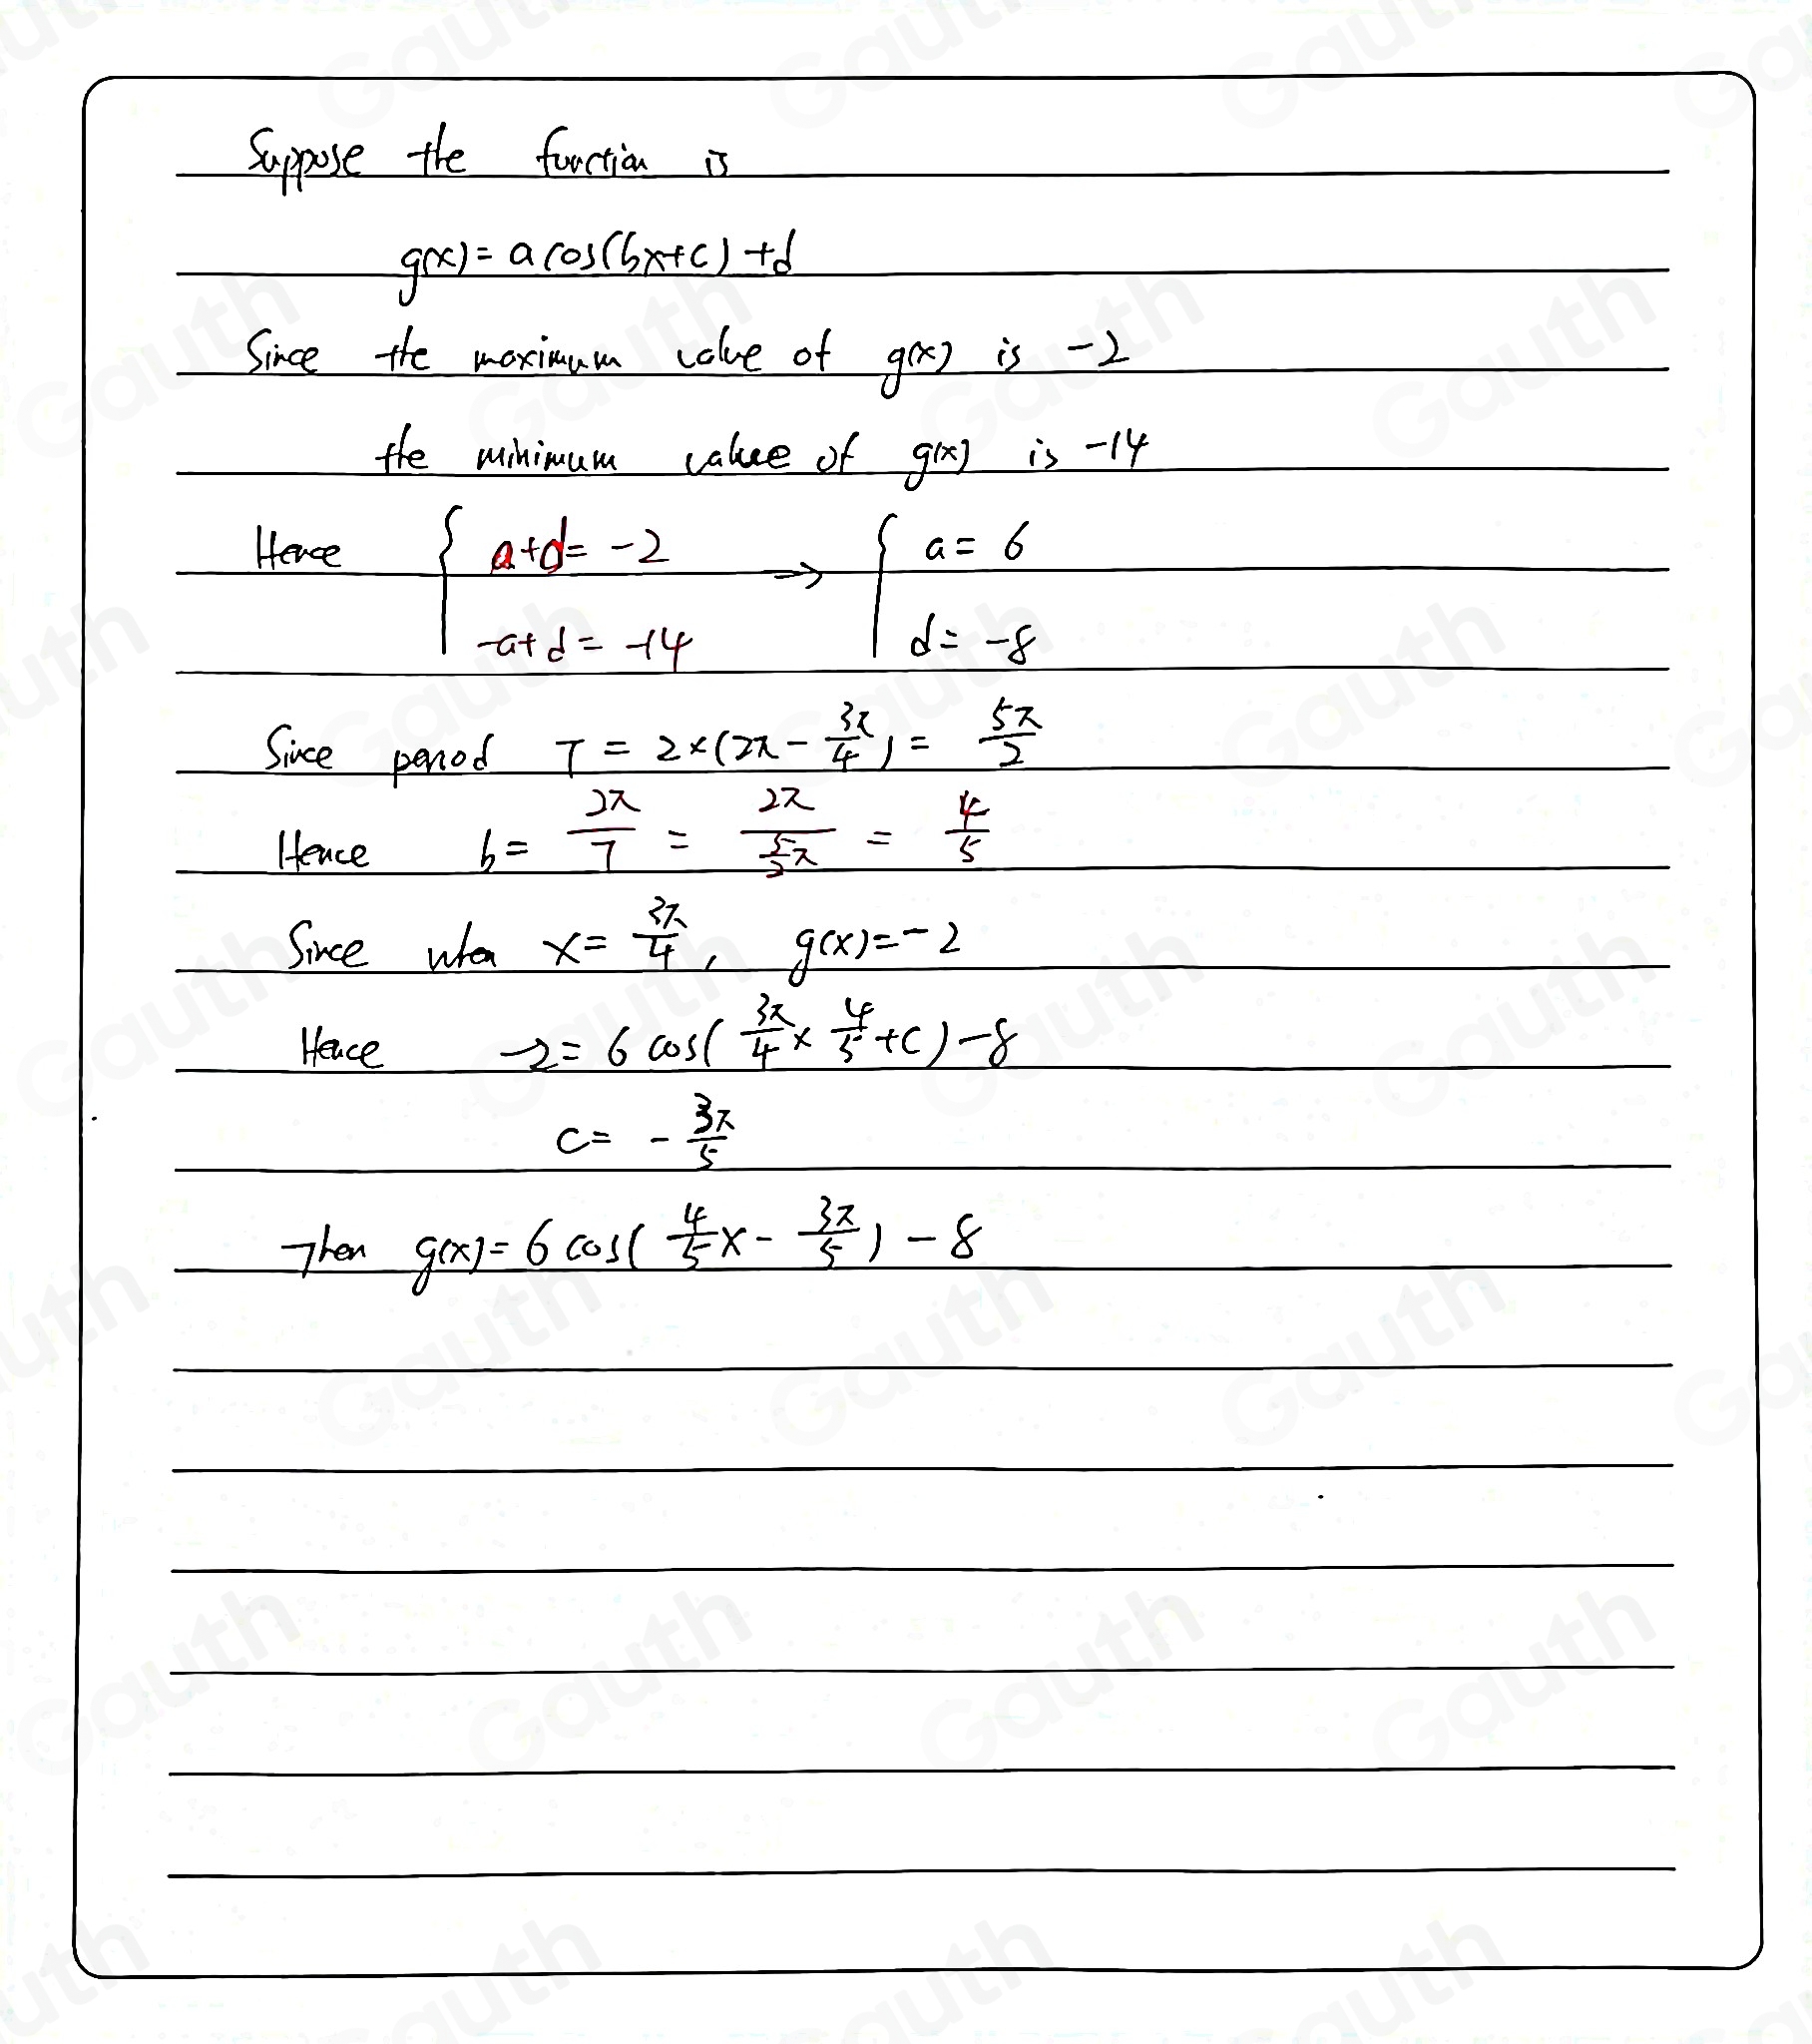 Suppose the function is
g(x) = a cos(bx+c) +d
Since the maximum value of g(x) is -2
the minimum value of g(x) is -14
Hence { a+d = -2 → { a = 6
-a+d = -14 d = -8
Since period T = 2×(2π - 3π/4) = 5π/2
Hence b = 2π/T = 2π/(5/2 π) = 4/5
Since when x = 3π/4, g(x) = -2
Hence -2 = 6 cos( 3π/4 × 4/5 + c ) - 8
c = - 3π/5
Then g(x) = 6 cos( 4/5 x - 3π/5 ) - 8
Gauth